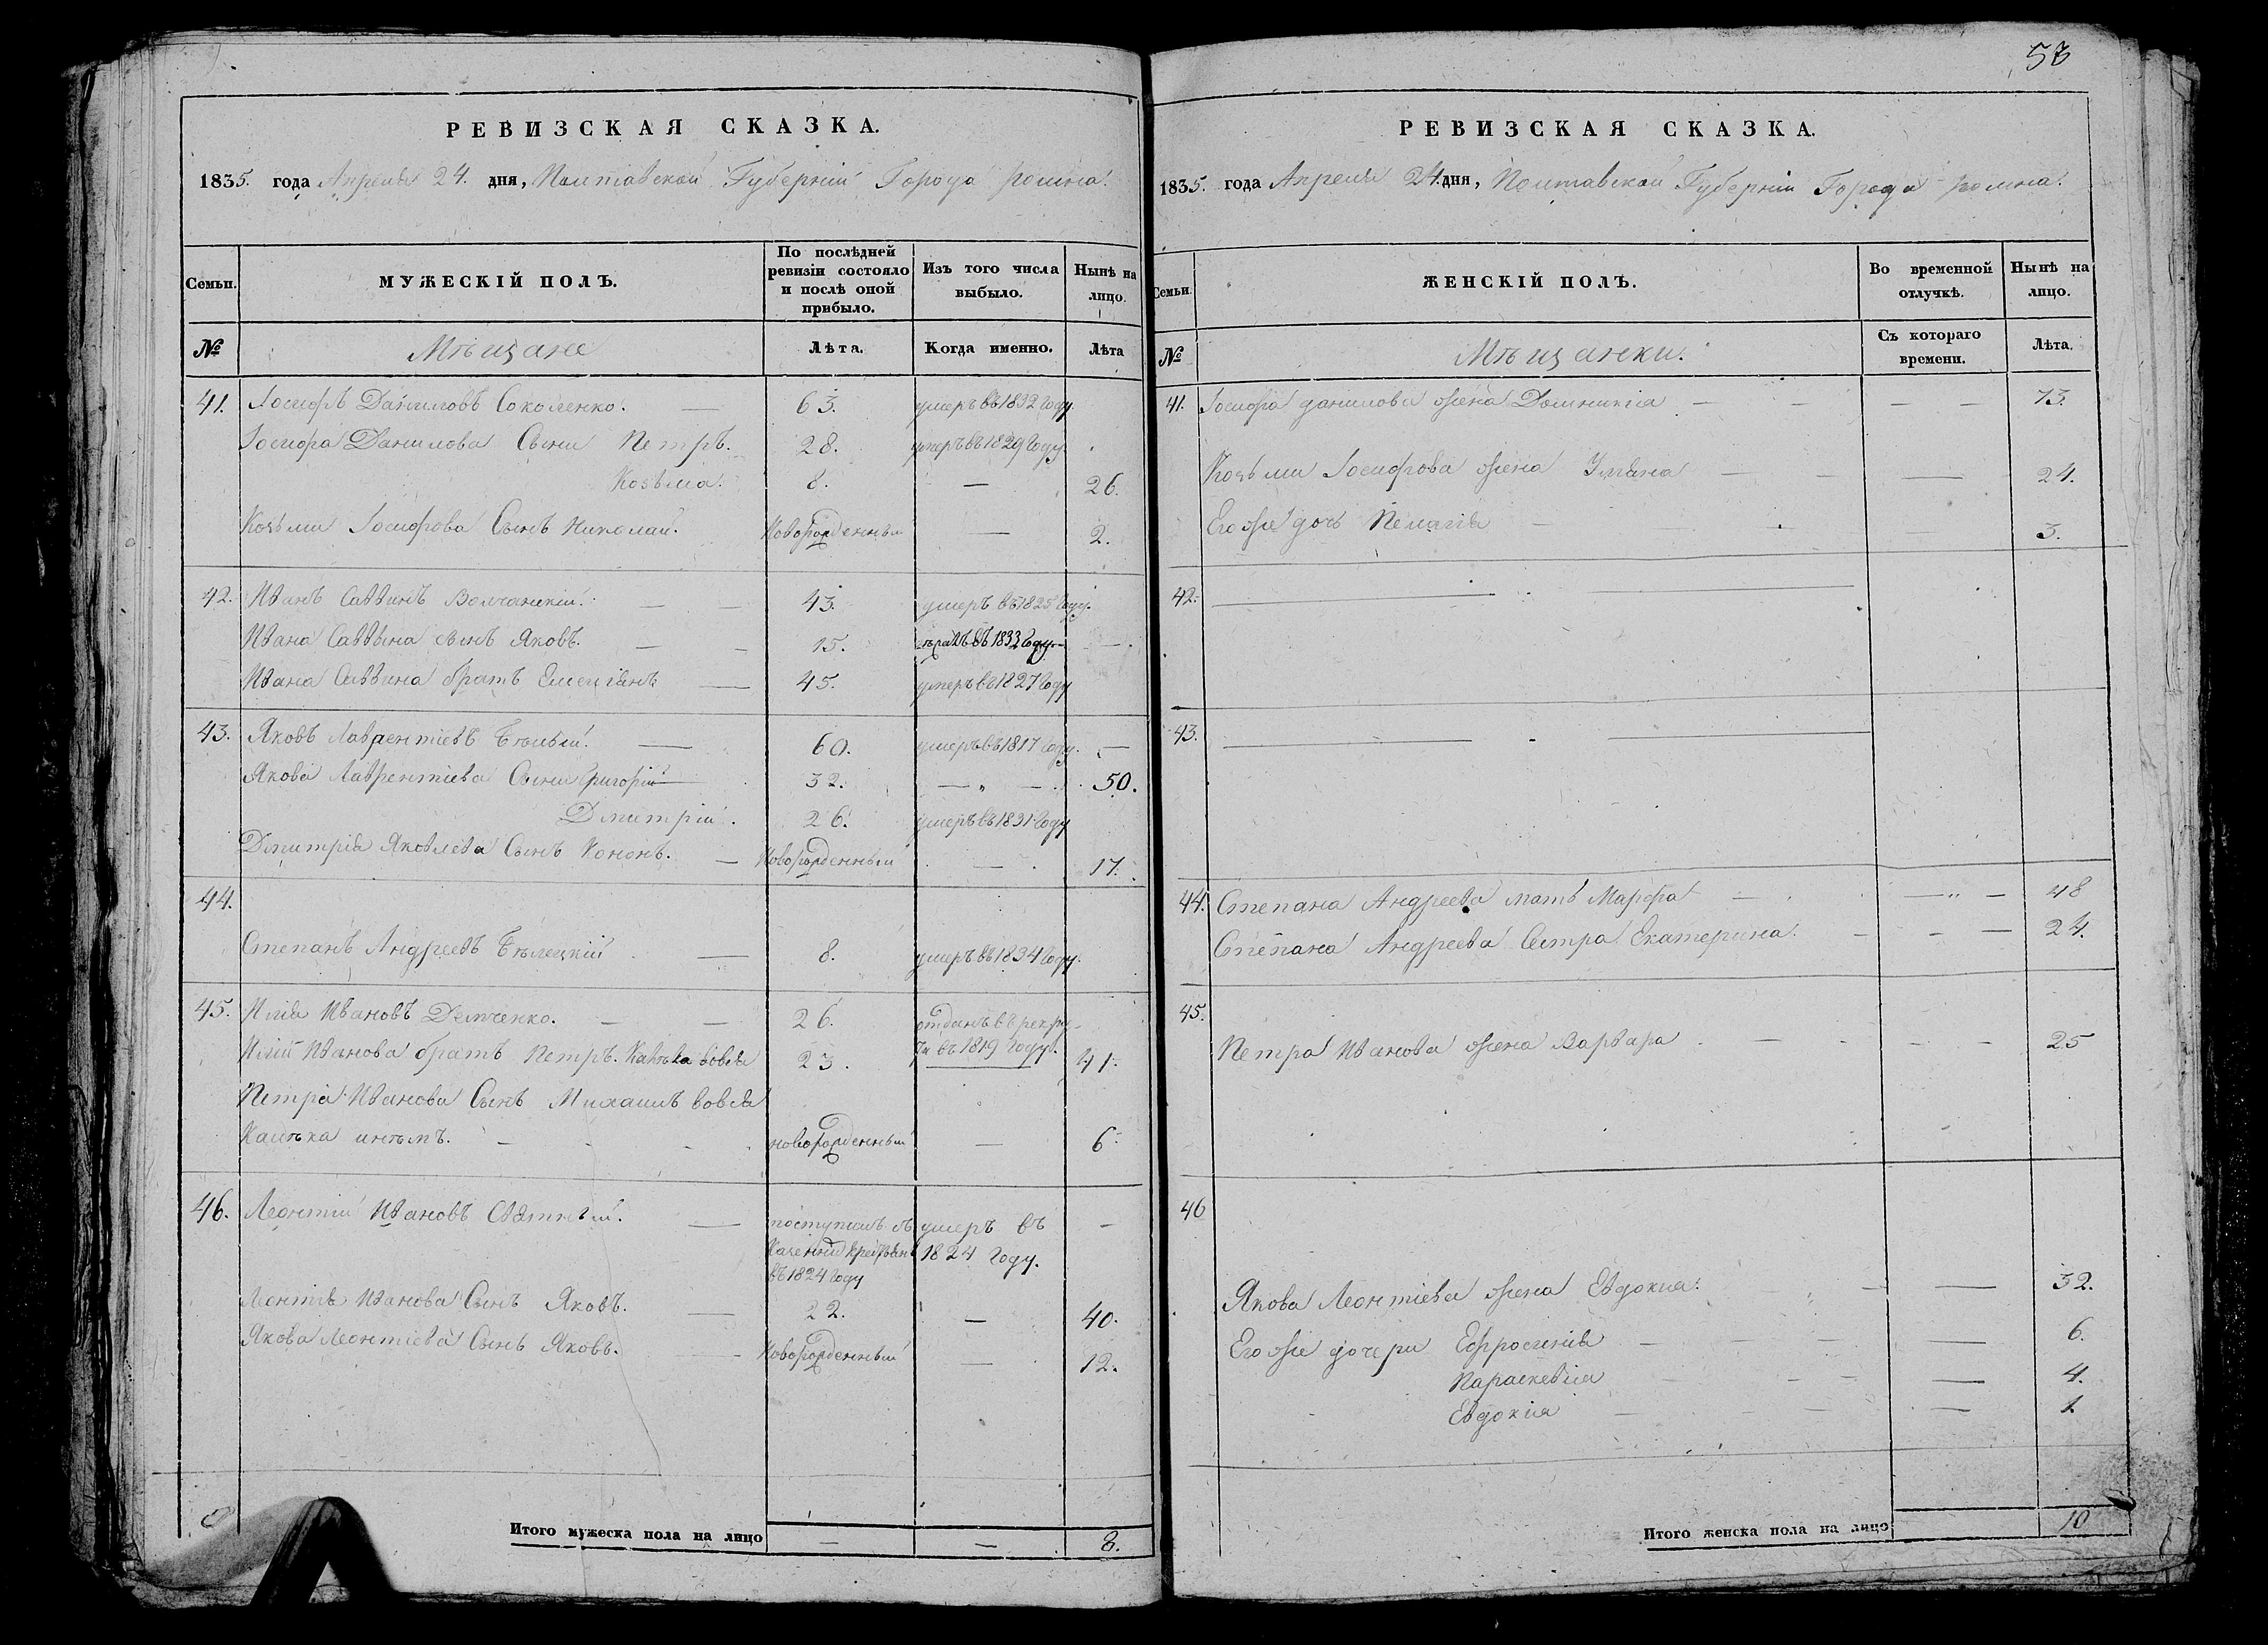 53
РЕВИЗСКАЯ СКАЗКА.
1835. года Апреля 24. дня, Полтавской Губерніи Города Ромна.
Семьи.
МУЖЕСКІЙ ПОЛЪ.
По послѣдней ревизіи состояло и послѣ оной прибыло.
Изъ того числа выбыло.
Нынѣ на лицо.
№
Мѣщане
Лѣта.
Когда именно.
Лѣта
41. Іосифъ Даниловъ Соколенко. — 63. умеръ въ 1832 году.
Іосифа Данилова Сыни Петръ. 28. умеръ въ 1829 году.
Козьма. 8. — 26.
Козьми Іосифова Сынъ Николай. Новорожденный — 2.
42. Иванъ Саввинъ Волчанскій. — — 43. умеръ въ 1825 году.
Ивана Саввина сынъ Яковъ. — — 15. въ 1833 году. —
Ивана Саввина братъ Емельянъ — 45. умеръ въ 1827 году
43. Яковъ Лаврентіевъ Бѣлый. — 60. умеръ въ 1817 году. —
Якова Лаврентіева Сыни Григорій 32. — „ — 50.
Дмитрій. 26. умеръ въ 1831 году
Дмитрія Яковлева Сынъ Кононъ. — Новорожденный — 17.
44.
Степанъ Андреевъ Бѣлецкій — 8. умеръ въ 1834 году.
45. Илія Ивановъ Демченко. — — 26. отданъ въ рекру-
ти въ 1819 году.
Иліи Иванова братъ Петръ. Калѣка вовся 23. — 41.
Петра Иванова Сынъ Михаилъ вовся
Калѣка — новорожденный — 6.
46. Леонтій Ивановъ Свѣтный. — поступилъ умеръ въ —
1824 году.
въ 1824 году
Леонтія Иванова Сынъ Яковъ. — 22. — 40.
Якова Леонтіева Сынъ Яковъ. — Новорожденный — 12.
Итого мужеска пола на лицо — — 8.
РЕВИЗСКАЯ СКАЗКА.
1835. года Апреля 24. дня, Полтавской Губерніи Города Ромна.
Семьи.
ЖЕНСКІЙ ПОЛЪ.
Во временной отлучкѣ.
Нынѣ на лицо.
№
Мѣщанки.
Съ котораго времени.
Лѣта.
41. Іосифа Данилова жена Домникія — — — — 73.
Козьми Іосифова жена Уляна — — 24.
Его же дочь Пелагія — — 3.
42. —
43. —
44. Степана Андреева мать Марфа — — „ — 48
Степана Андреева Сестра Екатерина. — — — 24.
45.
Петра Иванова жена Варвара — — — 25
46
Якова Леонтіева жена Евдокия. — — 32.
Его же дочери Ефросинія — — — 6.
Параскевия — — — 4.
Евдокия — — — 1.
Итого женска пола на лицо 10